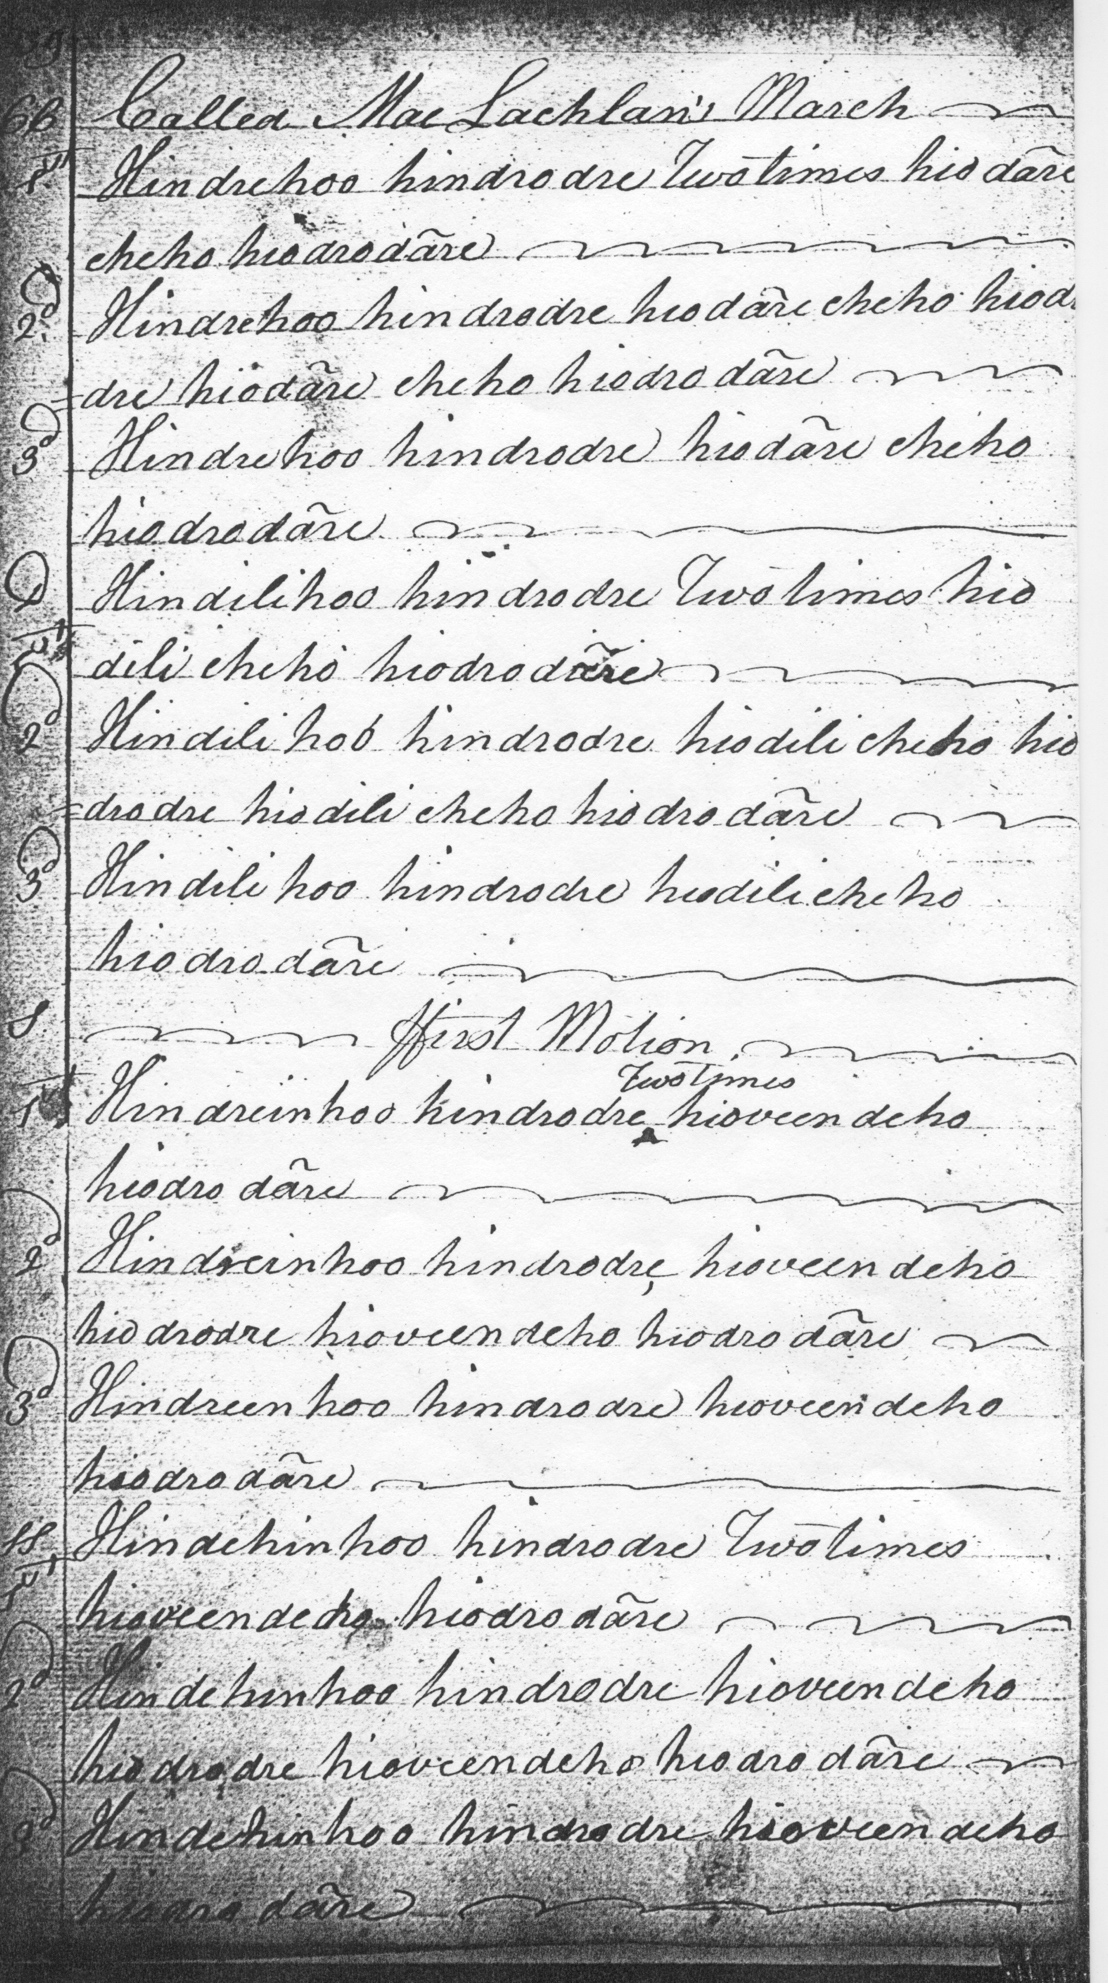 66 Called MacLachlan's March
1st Hindrehoo hindrodre Two times hiodãre
cheho hiodrodãre
2d Hindrehoo hindrodre hiodãre cheho hiod
dre hiodãre cheho hiodrodãre
3d Hindrehoo hindrodre hiodãre cheho
hiodrodãre
D Hindilihoo hindrodre Two times hio
1st dili cheho hiodrodãre
2d Hindilihoo hindrodre hiodili cheho hio
=drodre hiodili cheho hiodrodãre
3d Hindilihoo hindrodre hiodili cheho
hiodrodãre
S ffirst Motion
Two times
1st Hindreinhoo hindrodre hioveendeho
hiodrodãre
2d Hindreinhoo hindrodre hioveendeho
hiodrodre hioveendeho hiodrodãre
3d Hindreenhoo hindrodre hioveendeho
hiodrodãre
Hindehinhoo hindrodre Two times
1st hioveendeho hiodrodãre
2d Hindehinhoo hindrodre hioveendeho
hiodrodre hioveendeho hiodrodãre
3d Hindehinhoo hindrodre hioveendeho
hiodrodãre